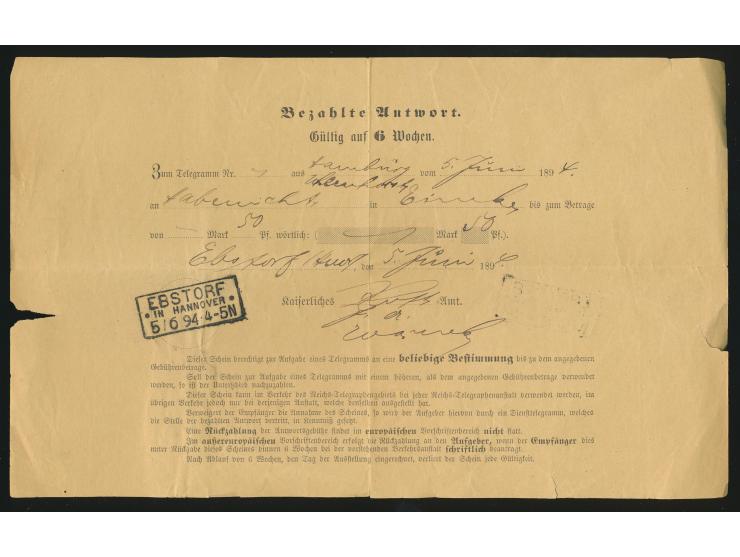 Bezahlte Antwort.
Gültig auf 6 Wochen.
Zum Telegramm Nr. aus Hamburg vom 5. Juni 1894.
an Habenicht in Eimke bis zum Betrage
von — Mark 50 Pf. wörtlich: ( Mark 50 Pf.).
Ebstorf, Hann., vom 5. Juni 1894
Kaiserliches Post-Amt.
EBSTORF
IN HANNOVER
5/6 94·4-5N
Dieser Schein berechtigt zur Aufgabe eines Telegramms an eine beliebige Bestimmung bis zu dem angegebenen
Gebührenbetrage.
Soll der Schein zur Aufgabe eines Telegramms mit einem höheren, als dem angegebenen Gebührenbetrage verwendet
werden, so ist der Unterschied nachzuzahlen.
Dieser Schein kann im Verkehr des Reichs-Telegraphengebiets bei jeder Reichs-Telegraphenanstalt verwendet werden, im
übrigen Verkehr jedoch nur bei derjenigen Anstalt, welche denselben ausgestellt hat.
Verweigert der Empfänger die Annahme des Scheines, so wird der Aufgeber hiervon durch ein Diensttelegramm, welches
die Stelle der bezahlten Antwort vertritt, in Kenntniß gesetzt.
Eine Rückzahlung der Antwortsgebühr findet im europäischen Vorschriftenbereich nicht statt.
Im außereuropäischen Vorschriftenbereich erfolgt die Rückzahlung an den Aufgeber, wenn der Empfänger dies
unter Rückgabe dieses Scheines binnen 6 Wochen bei der vorstehenden Verkehrsanstalt schriftlich beantragt.
Nach Ablauf von 6 Wochen, den Tag der Ausstellung eingerechnet, verliert der Schein jede Gültigkeit.